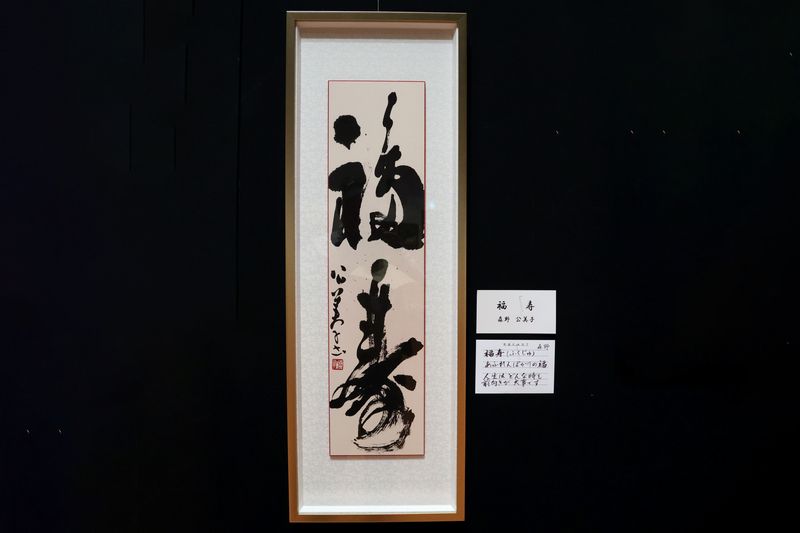 福寿
公美子書
福 寿
森野 公美子
森野
福寿(ふくじゅ)
あふれんばかりの福
人生は どんな時も
前向きが 大事です